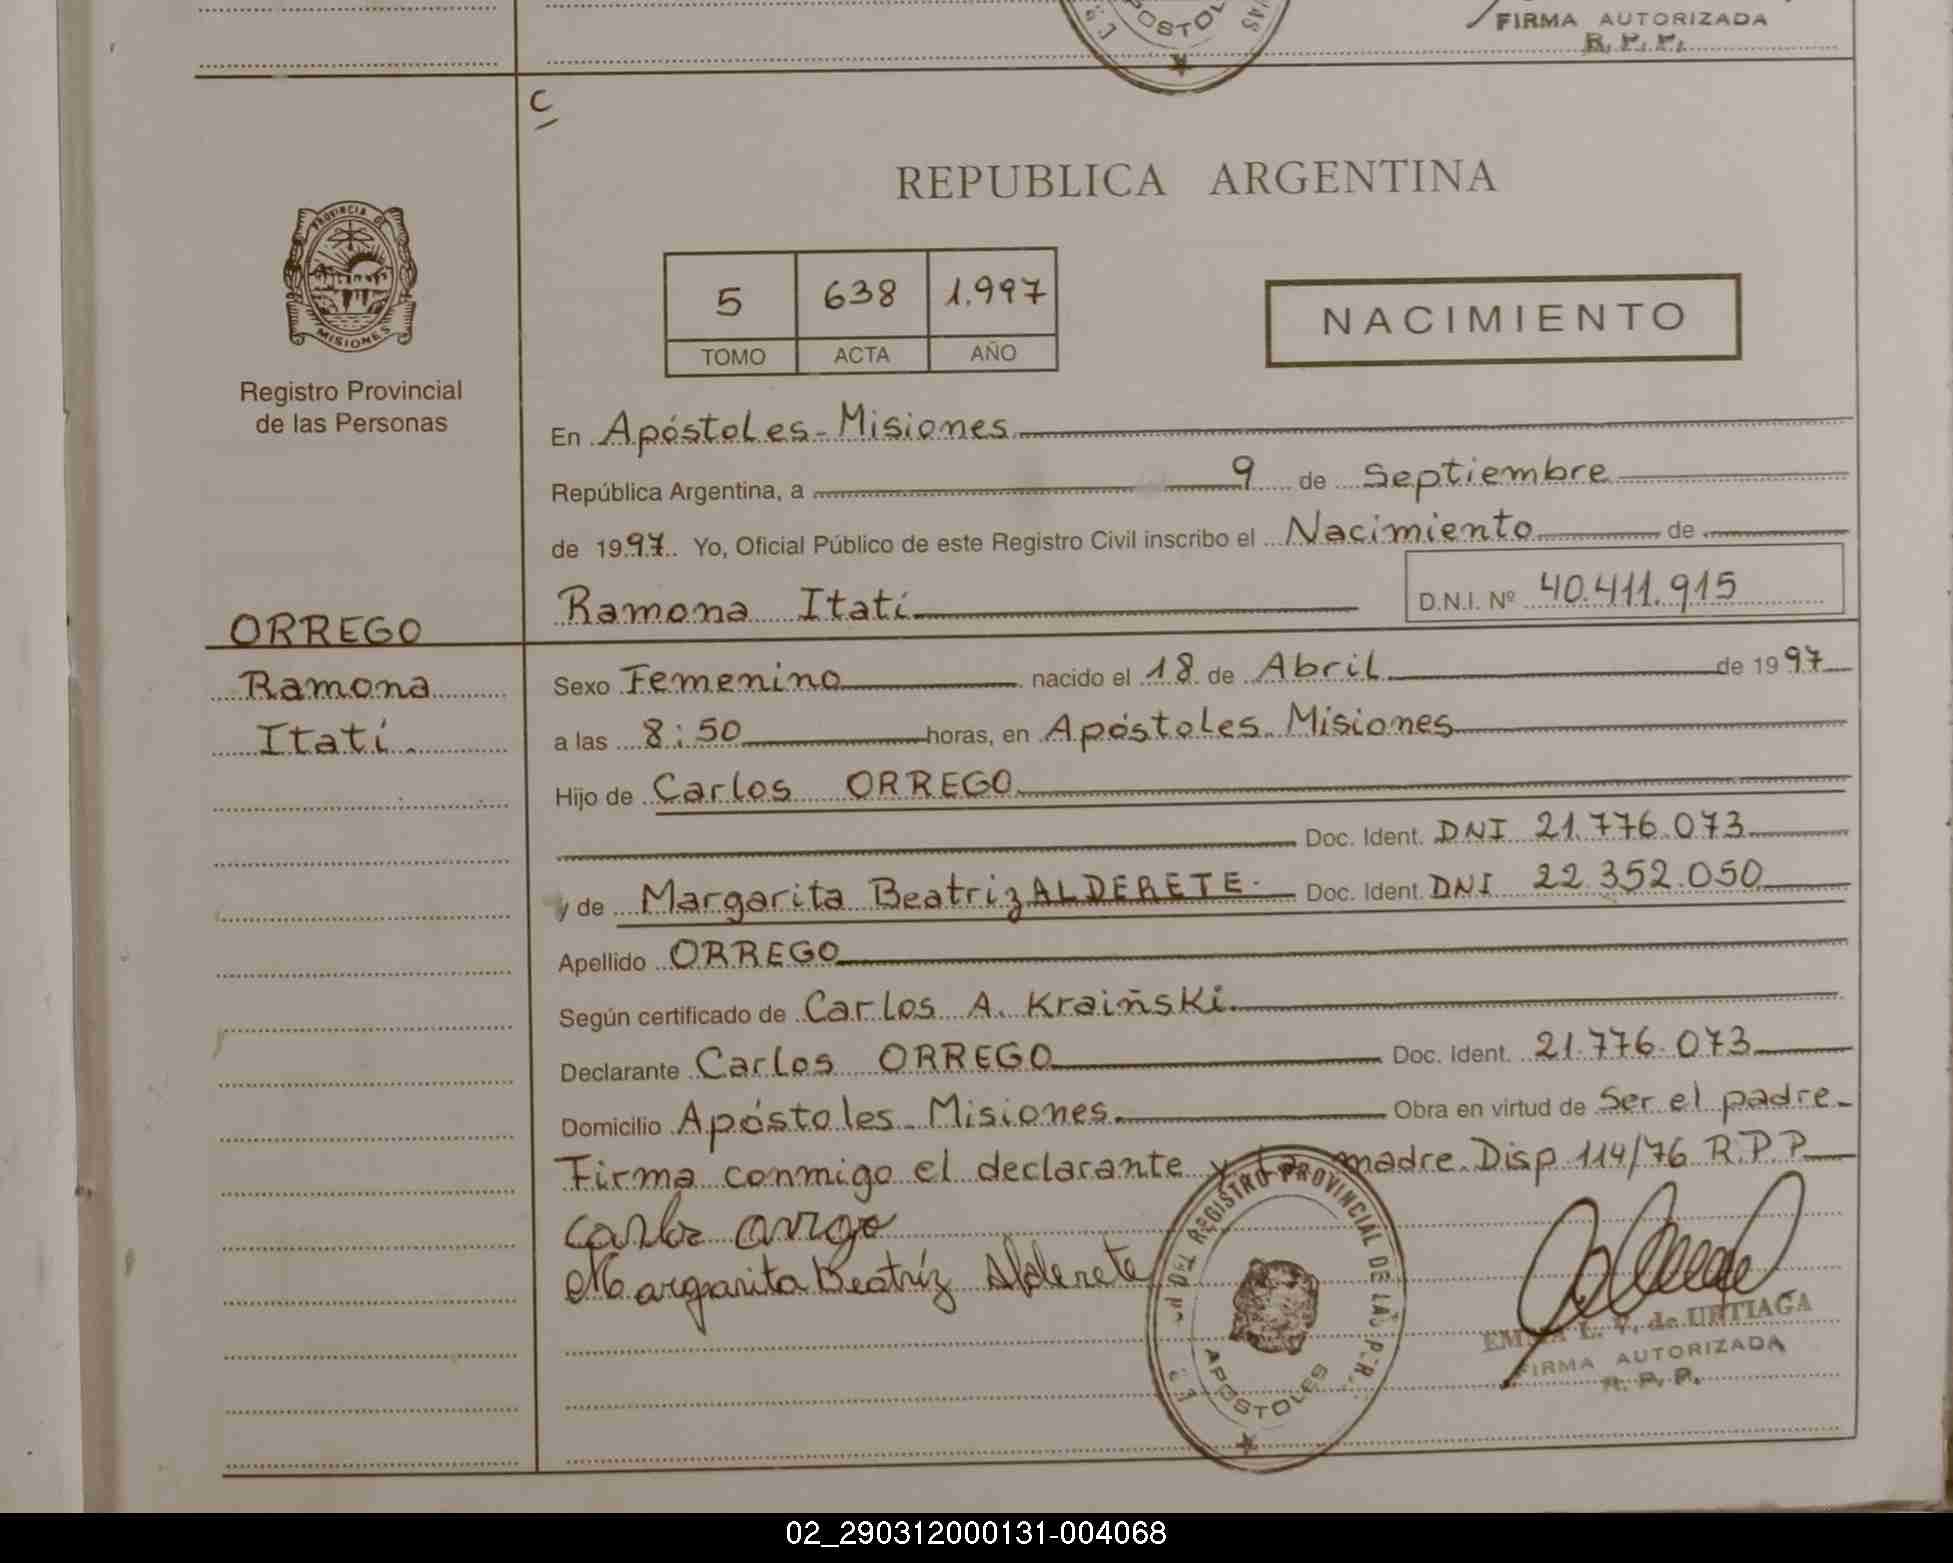 FIRMA AUTORIZADA
R. P. P.
C
REPUBLICA ARGENTINA
PROVINCIA DE
MISIONES
Registro Provincial
de las Personas
5 638 1.997
TOMO ACTA AÑO
NACIMIENTO
En Apóstoles - Misiones
República Argentina, a 9 de Septiembre
de 1997. Yo, Oficial Público de este Registro Civil inscribo el Nacimiento de
Ramona Itatí D.N.I. Nº 40.411.915
ORREGO
Ramona
Itatí.
Sexo Femenino nacido el 18 de Abril de 1997
a las 8:50 horas, en Apóstoles. Misiones
Hijo de Carlos ORREGO
Doc. Ident. DNI 21.776.073
y de Margarita Beatriz ALDERETE. Doc. Ident. DNI 22.352.050
Apellido ORREGO
Según certificado de Carlos A. Kraiñski.
Declarante Carlos ORREGO Doc. Ident. 21.776.073
Domicilio Apóstoles. Misiones. Obra en virtud de Ser el padre.
Firma conmigo el declarante y la madre. Disp 114/76 R.P.P.
Margarita Beatríz Alderete
DEL REGISTRO PROVINCIAL DE LAS P.R.
APOSTOLES
EMMA L. V. de URTIAGA
FIRMA AUTORIZADA
R. P. P.
02_290312000131-004068